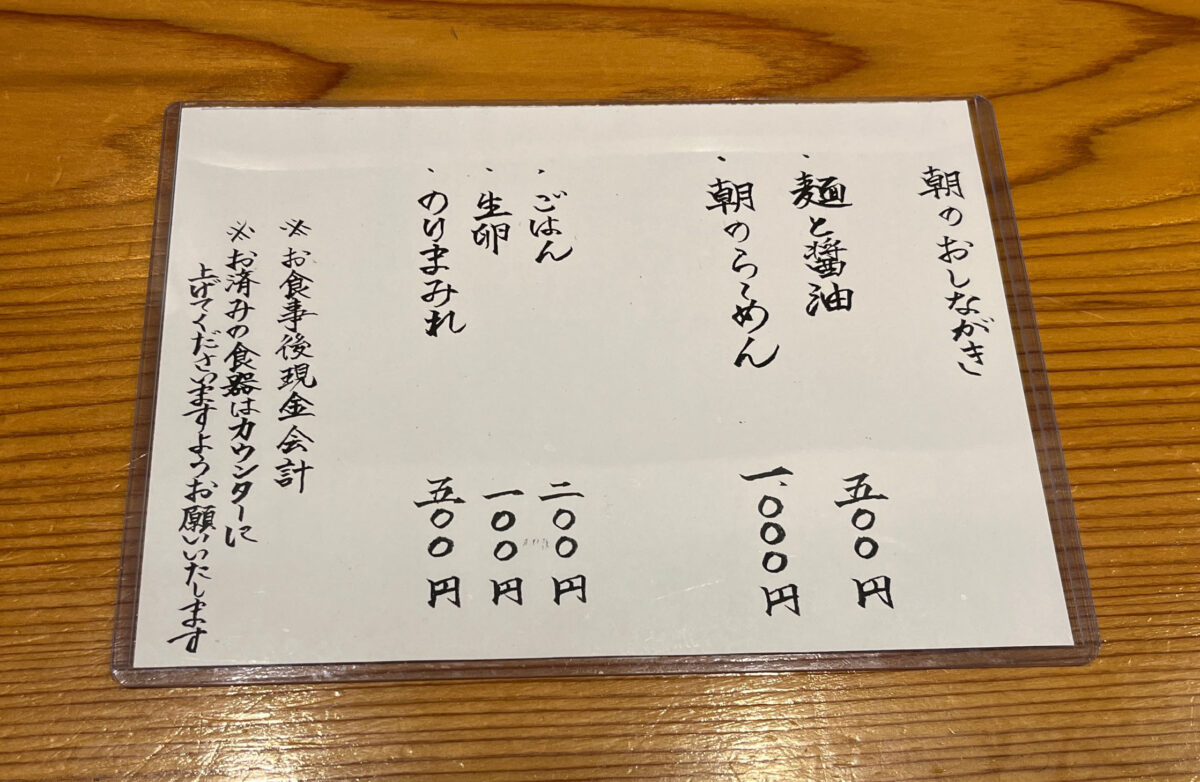 朝のおしながき
・麺と醤油 五〇〇円
・朝のらぁめん 一、〇〇〇円
・ごはん 二〇〇円
・生卵 一〇〇円
・のりまみれ 五〇〇円
※お食事後現金会計
※お済みの食器はカウンターに
上げてくださいますようお願いいたします